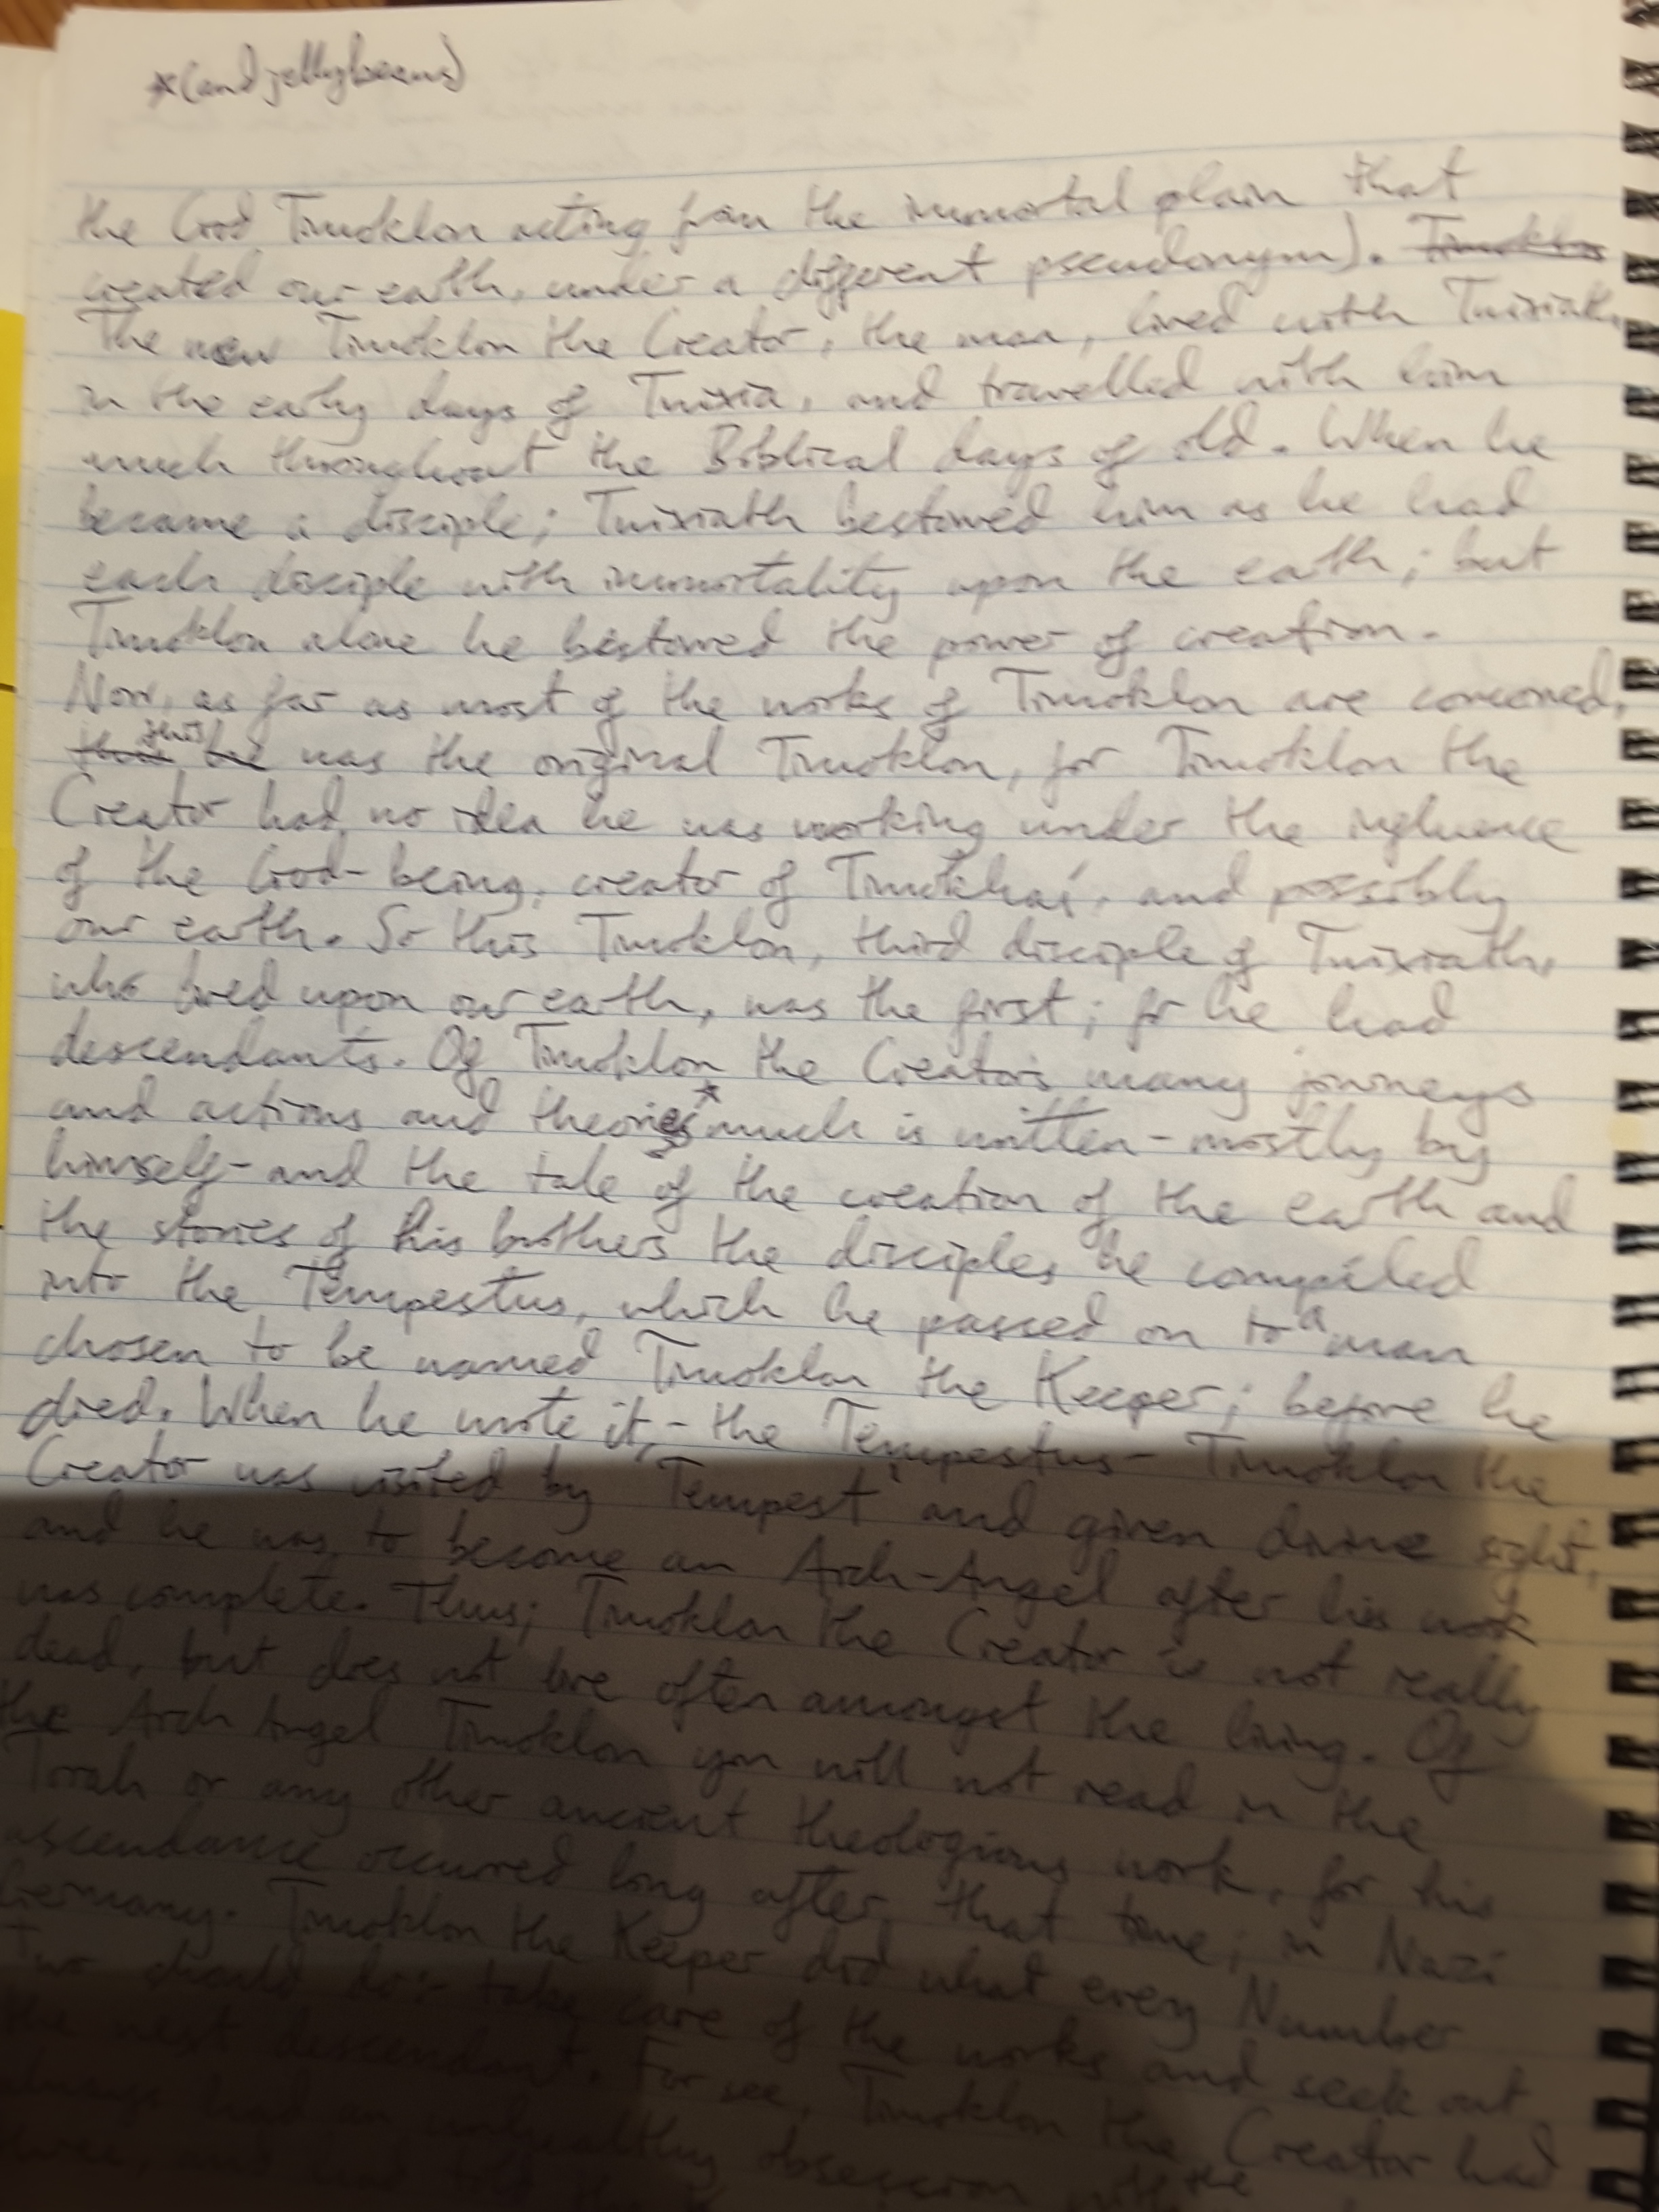 *(and jellybeans)
the God Timoklon acting from the immortal plain that
created our earth, under a different pseudonym). Timoklon
The new Timoklon the Creator, the man, lived with Tuixiath
in the early days of Tuixia, and travelled with him
much throughout the Biblical days of old. When he
became a disciple; Tuixiath bestowed him as he had
each disciple with immortality upon the earth; but
Timoklon alone he bestowed the power of creation.
Now, as far as most of the works of Timoklon are concerned,
this was the original Timoklon, for Timoklon the
Creator had no idea he was working under the influence
of the God-being, creator of Timoklaí, and possibly
our earth. So this Timoklon, third disciple of Tuixiath,
who lived upon our earth, was the first; for he had
descendants. Of Timoklon the Creator's many journeys
and actions and theories* much is written - mostly by
himself - and the tale of the creation of the earth and
the stories of his brothers the disciples he compiled
into the Tempestus, which he passed on to a man
chosen to be named Timoklon the Keeper; before he
died. When he wrote it, - the Tempestus - Timoklon the
Creator was visited by Tempest and given divine sight,
and he was to become an Arch-Angel after his work
was complete. Thus; Timoklon the Creator is not really
dead, but does not live often amongst the living. Of
the Arch Angel Timoklon you will not read in the
Torah or any other ancient theologious work, for his
ascendance occurred long after that time; in Nazi
Germany. Timoklon the Keeper did what every Number
Two should do:- take care of the works and seek out
the next descendant. For see, Timoklon the Creator had
always had an unhealthy obsession with the
three, and had told the